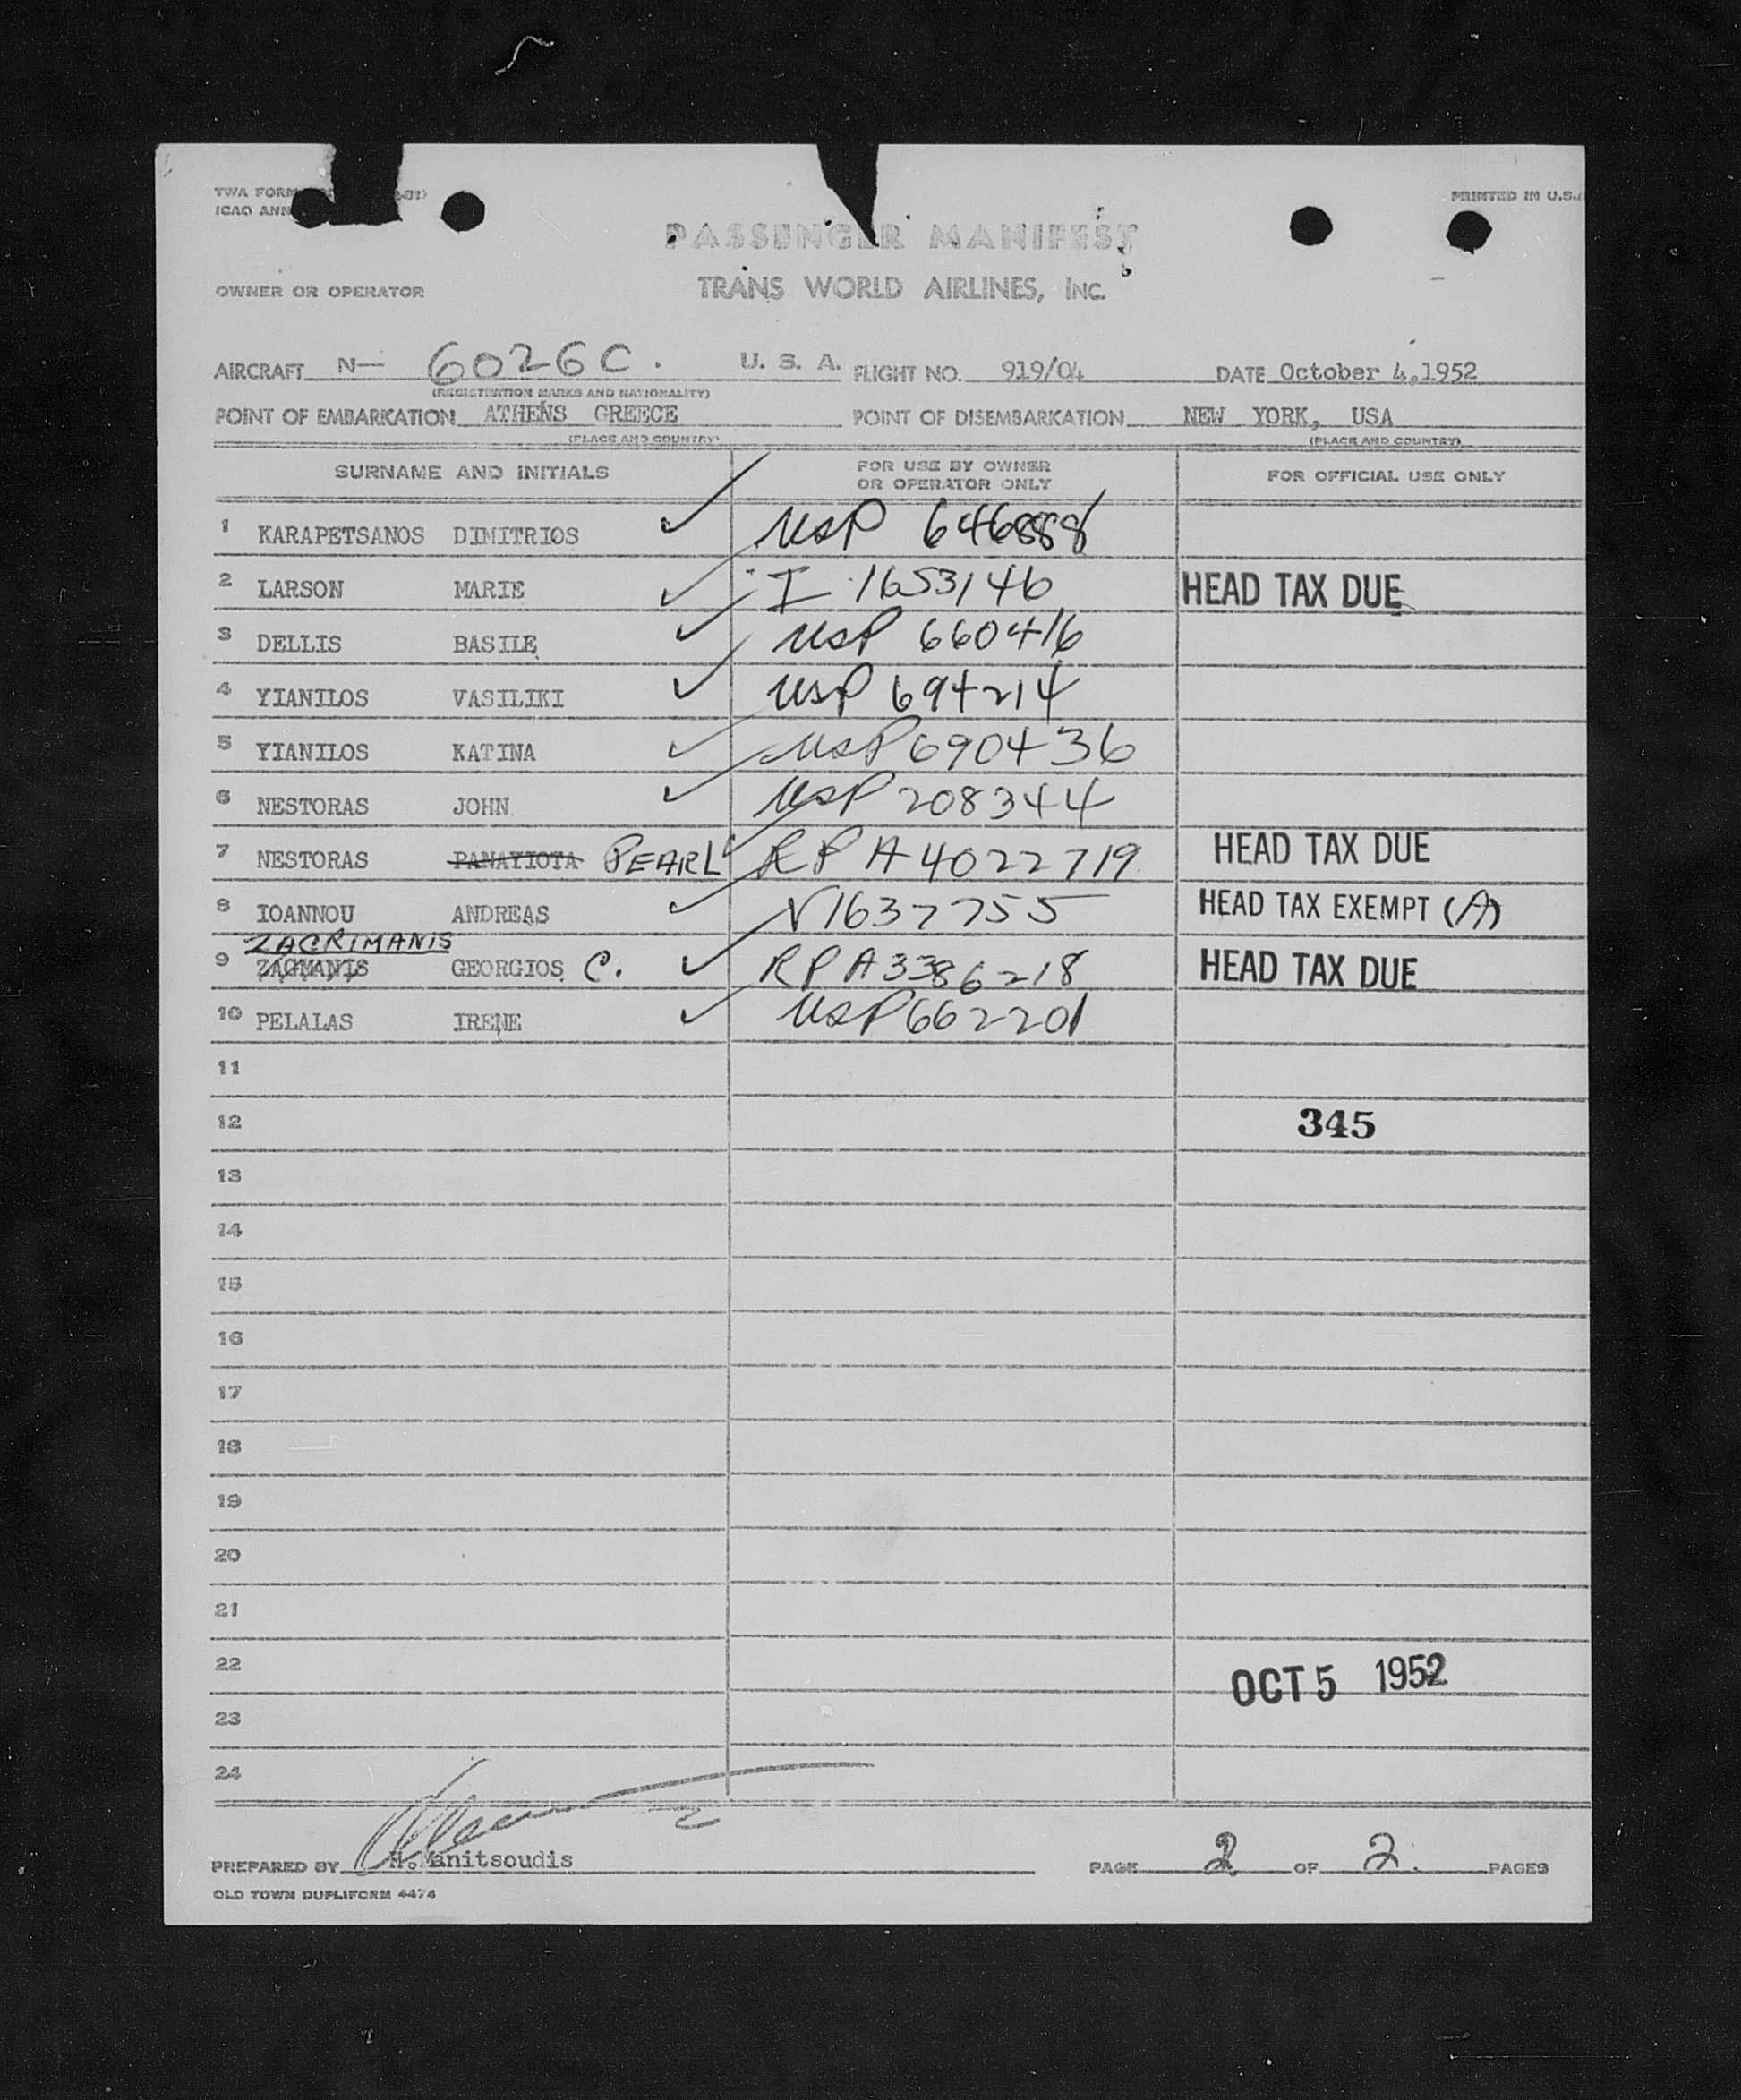 TWA FORM
ICAO ANN
PRINTED IN U.S.
PASSENGER MANIFEST
OWNER OR OPERATOR TRANS WORLD AIRLINES, INC.
AIRCRAFT N— 6026C. U. S. A. FLIGHT NO. 919/04 DATE October 4,1952
(REGISTRATION MARKS AND NATIONALITY)
POINT OF EMBARKATION ATHENS GREECE POINT OF DISEMBARKATION NEW YORK, USA
(PLACE AND COUNTRY) (PLACE AND COUNTRY)
SURNAME AND INITIALS FOR USE BY OWNER OR OPERATOR ONLY FOR OFFICIAL USE ONLY
1 KARAPETSANOS DIMITRIOS ✓ USP 646888
2 LARSON MARIE ✓ I 1653146 HEAD TAX DUE
3 DELLIS BASILE ✓ USP 660416
4 YIANILOS VASILIKI ✓ USP 694214
5 YIANILOS KATINA ✓ USP 690436
6 NESTORAS JOHN ✓ USP 208344
7 NESTORAS PANAYIOTA PEARL ✓ RP A4022719 HEAD TAX DUE
8 IOANNOU ANDREAS ✓ V1637755 HEAD TAX EXEMPT (A)
ZACRIMANIS
9 ZAGMANIS GEORGIOS C. ✓ RP A3386218 HEAD TAX DUE
10 PELALAS IRENE ✓ USP 662201
11
12 345
13
14
15
16
17
18
19
20
21
22 OCT 5 1952
23
24
PREPARED BY H. Manitsoudis PAGE 2 OF 2. PAGES
OLD TOWN DUPLIFORM 4474